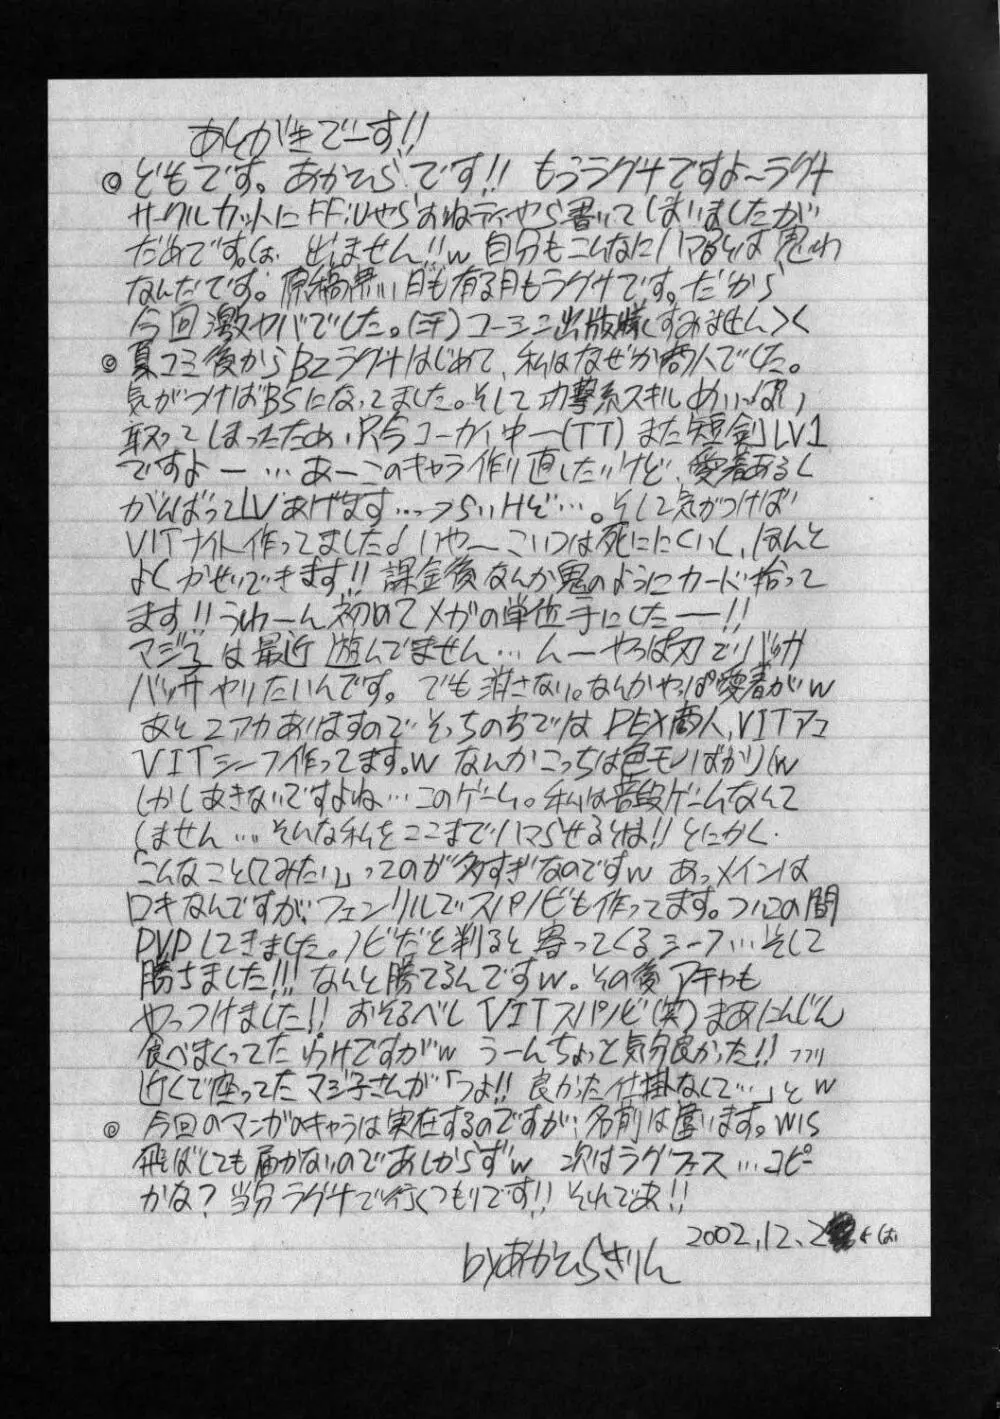 あとがきでーす!!
◎どもです。あかひらです!! もうラグナですよ〜ラグナ
サークルカットにFF:Uやらおねティやら書いてしまいましたが
だめです。は、出ません!!w 自分もこんなにハマるとは思わ
なんだです。原稿無い日も有る日もラグナです。だから
今回激ヤバでした。(汗)コーシン出版様すみません＞＜
◎夏コミ後からβ2ラグナはじめて、私はなぜか商人でした。
気がつけばBSになってました。そして攻撃系スキルめいっぱい
取ってしまったため、只今コーカイ中ー(TT)また短剣LV1
ですよー…あーこのキャラ作り直したいけど、愛着あるし
がんばってLVあげます…つらいけど…。そして気がつけば
VITナイト作ってました♪いやーこいつは死ににくいし、ほんと
よくかせいできます!! 課金後なんか鬼のようにカード拾って
ます!!うわーん初めてメガの単位手にしたー!!
マジ子は最近遊んでません…んーやっぱ刃でバッサ
バッサやりたいんです。でも消さない。なんかやっぱ愛着がw
あと2アカありますので、そっちの方ではDEX商人、VITアコ
VITシーフ作ってます。w なんかこっちは色モノばかり(w
しかしあきないですよね…このゲーム。私は普段ゲームなんて
しません…そんな私をここまでハマらせるとは!! とにかく
「こんなことしてみたい」ってのが多すぎなのですw あっメインは
ロキなんですが、フェンリルでスパノビも作ってます。ついこの間
PVPしてきました。ノビだと判ると寄ってくるシーフ…そして
勝ちました!!! なんと勝てるんですw。その後アチャも
やっつけました!! おそるべしVITスパノビ(笑)まあにんじん
食べまくってたわけですがw うーんちょっと気分良かった!! フフリ
近くで座ってたマジ子さんが「つよ!! 良かった仕掛なくて…」とw
◎今回のマンガのキャラは実在するのですが、名前は違います。WIS
飛ばしても届かないのであしからずw 次はラグフェス…コピー
かな? 当分ラグナで行くつもりです!! それでわ!!
2002.12.2
byあかひらきりん